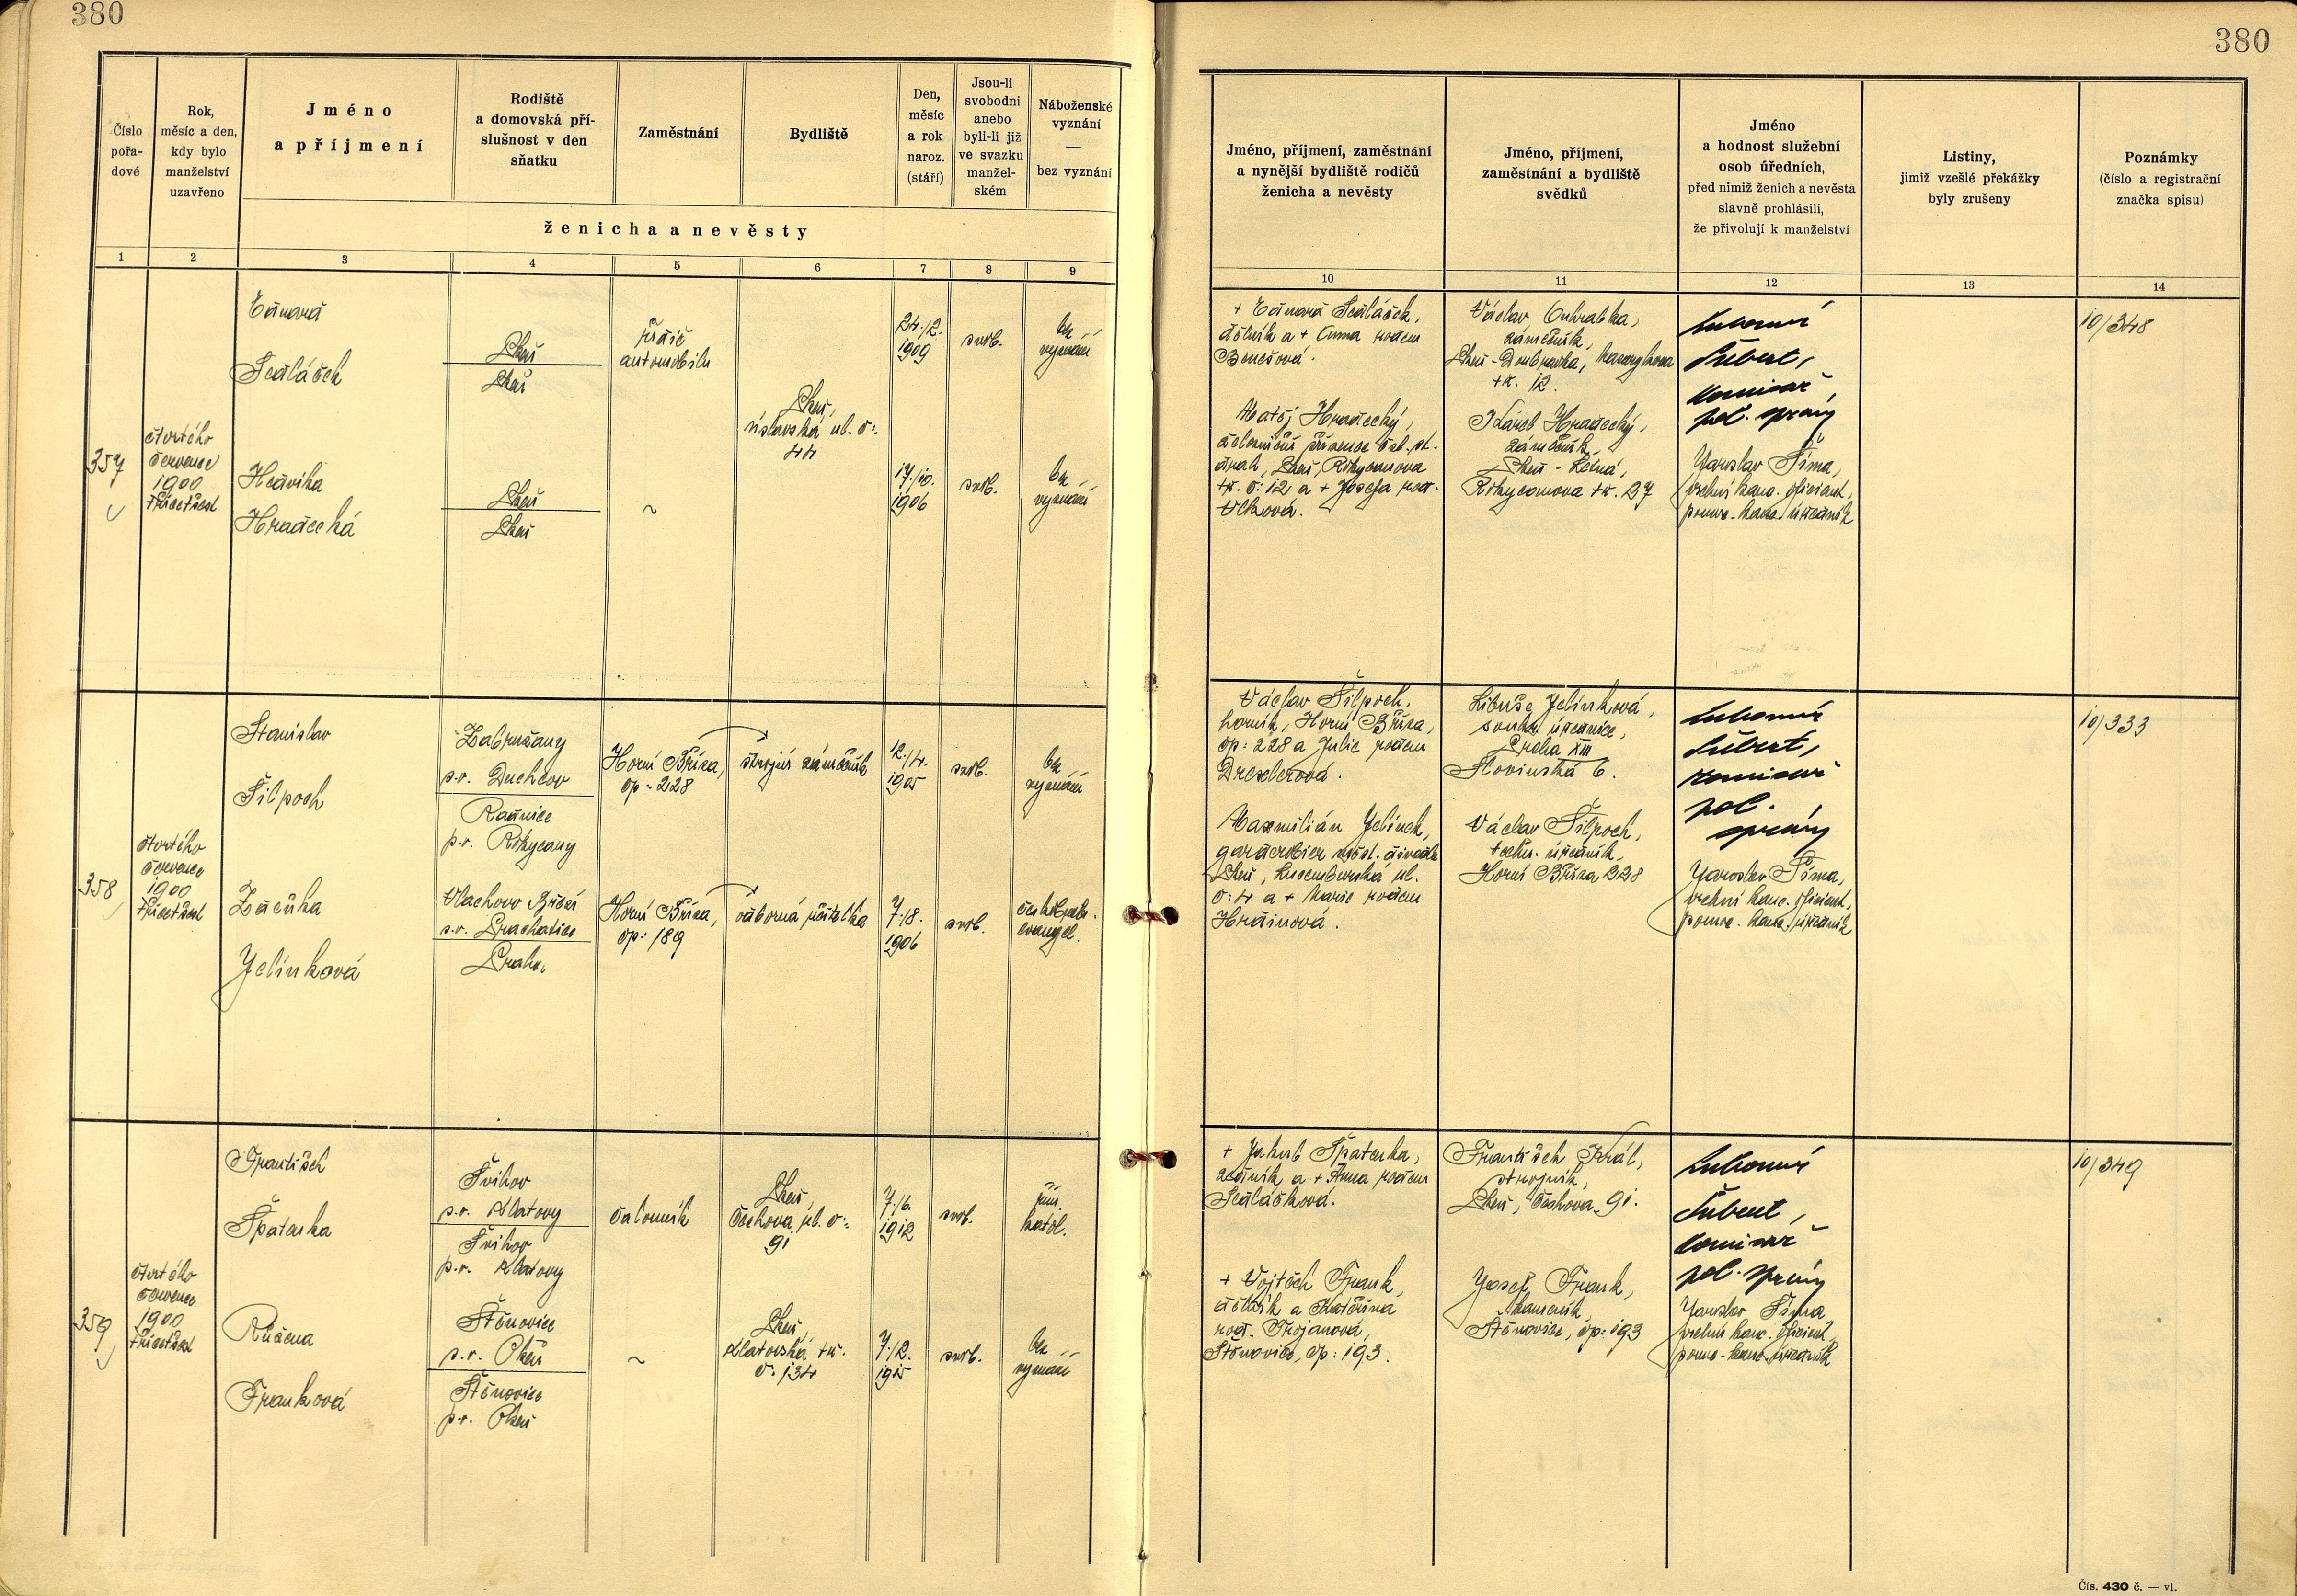 380
380
Číslo
pořa-
dové
Rok,
měsíc a den,
kdy bylo
manželství
uzavřeno
Jméno
a příjmení
Rodiště
a domovská pří-
slušnost v den
sňatku
Zaměstnání
Bydliště
Den,
měsíc
a rok
naroz.
(stáří)
Jsou-li
svobodni
anebo
byli-li již
ve svazku
manžel-
ském
Náboženské
vyznání
—
bez vyznání
ženicha a nevěsty
Jméno, příjmení, zaměstnání
a nynější bydliště rodičů
ženicha a nevěsty
Jméno, příjmení,
zaměstnání a bydliště
svědků
Jméno
a hodnost služební
osob úředních,
před nimiž ženich a nevěsta
slavně prohlásili,
že přivolují k manželství
Listiny,
jimiž vzešlé překážky
byly zrušeny
Poznámky
(číslo a registrační
značka spisu)
1 2 3 4 5 6 7 8 9 10 11 12 13 14
357
čtvrtého
července
1900
třicetšest
Eduard
Sedláček
Plzeň
Plzeň
řidič
automobilu
Plzeň,
úslavská ul. č:
44
24./2.
1909
svob.
bez
vyznání
Hedvika
Hradecká
Plzeň
Plzeň
~
17./10.
1906
svob.
bez
vyznání
+ Eduard Sedláček,
dělník a + Anna rodem
Benešová.
Matěj Hradecký,
drah, Plzeň, Rokycanova
tř. č: 12 a + Josefa roz.
Vlková.
Václav Outratka,
zámečník,
Plzeň-Doubravka, Masarykova
tř. 12.
Karel Hradecký,
zámečník
Plzeň - Letná,
Rokycanova tř. 27
Lubomír
Šubert,
komisař
pol. správy
Jaroslav Šíma,
vrchní kanc. oficiant,
pomoc. kanc. úředník
10/348
358
čtvrtého
července
1900
třicetšest
Stanislav
Šilpoch
Zabrušany
s.o. Duchcov
Radnice
p.o. Rokycany
Horní Bříza,
čp: 228
strojní zámečník
12./4.
1905
svob.
bez
vyznání
Zdeňka
Jelínková
Vlachovo Březí
s.o. Prachatice
Praha
Horní Bříza,
čp: 189
odborná učitelka
7./8.
1906
svob.
českobratr.
evangel.
Václav Šilpoch,
horník, Horní Bříza,
čp: 228 a Julie rodem
Drexlerová.
Maxmilián Jelínek,
Plzeň, Lucemburská ul.
č: 4 a + Marie rodem
Hrdinová.
Libuše Jelínková,
soukr. úřednice,
Praha XIII
Slovinská 6.
Václav Šilpoch,
techn. úředník,
Horní Bříza 228
Lubomír
Šubert,
komisař
pol.
správy
Jaroslav Šíma,
vrchní kanc. oficiant,
pomoc. kanc. úředník
10/333
359
čtvrtého
července
1900
třicetšest
František
Špatenka
Švihov
s.o. Klatovy
Švihov
p.o. Klatovy
čalouník
Plzeň,
Čechova ul. č:
91
7./6.
1912
svob.
řím.
katol.
Růžena
Franková
Štěnovice
s.o. Plzeň
Štěnovice
p.o. Plzeň
~
Plzeň,
Klatovská tř.
č. 134
7./2.
1915
svob.
bez
vyznání
+ Jakub Špatenka,
zedník a + Anna rodem
Sedláčková.
+ Vojtěch Frank,
dělník a Kateřina
roz. Trojanová,
Štěnovice, čp: 193.
František Král,
strojník,
Plzeň, Čechova 91.
Josef Frank,
kameník
Štěnovice, čp: 193
Lubomír
Šubert,
komisař
pol. správy
Jaroslav Šíma,
vrchní kanc. oficiant,
pomoc. kanc. úředník
10/349
Čís. 430 č. — vl.